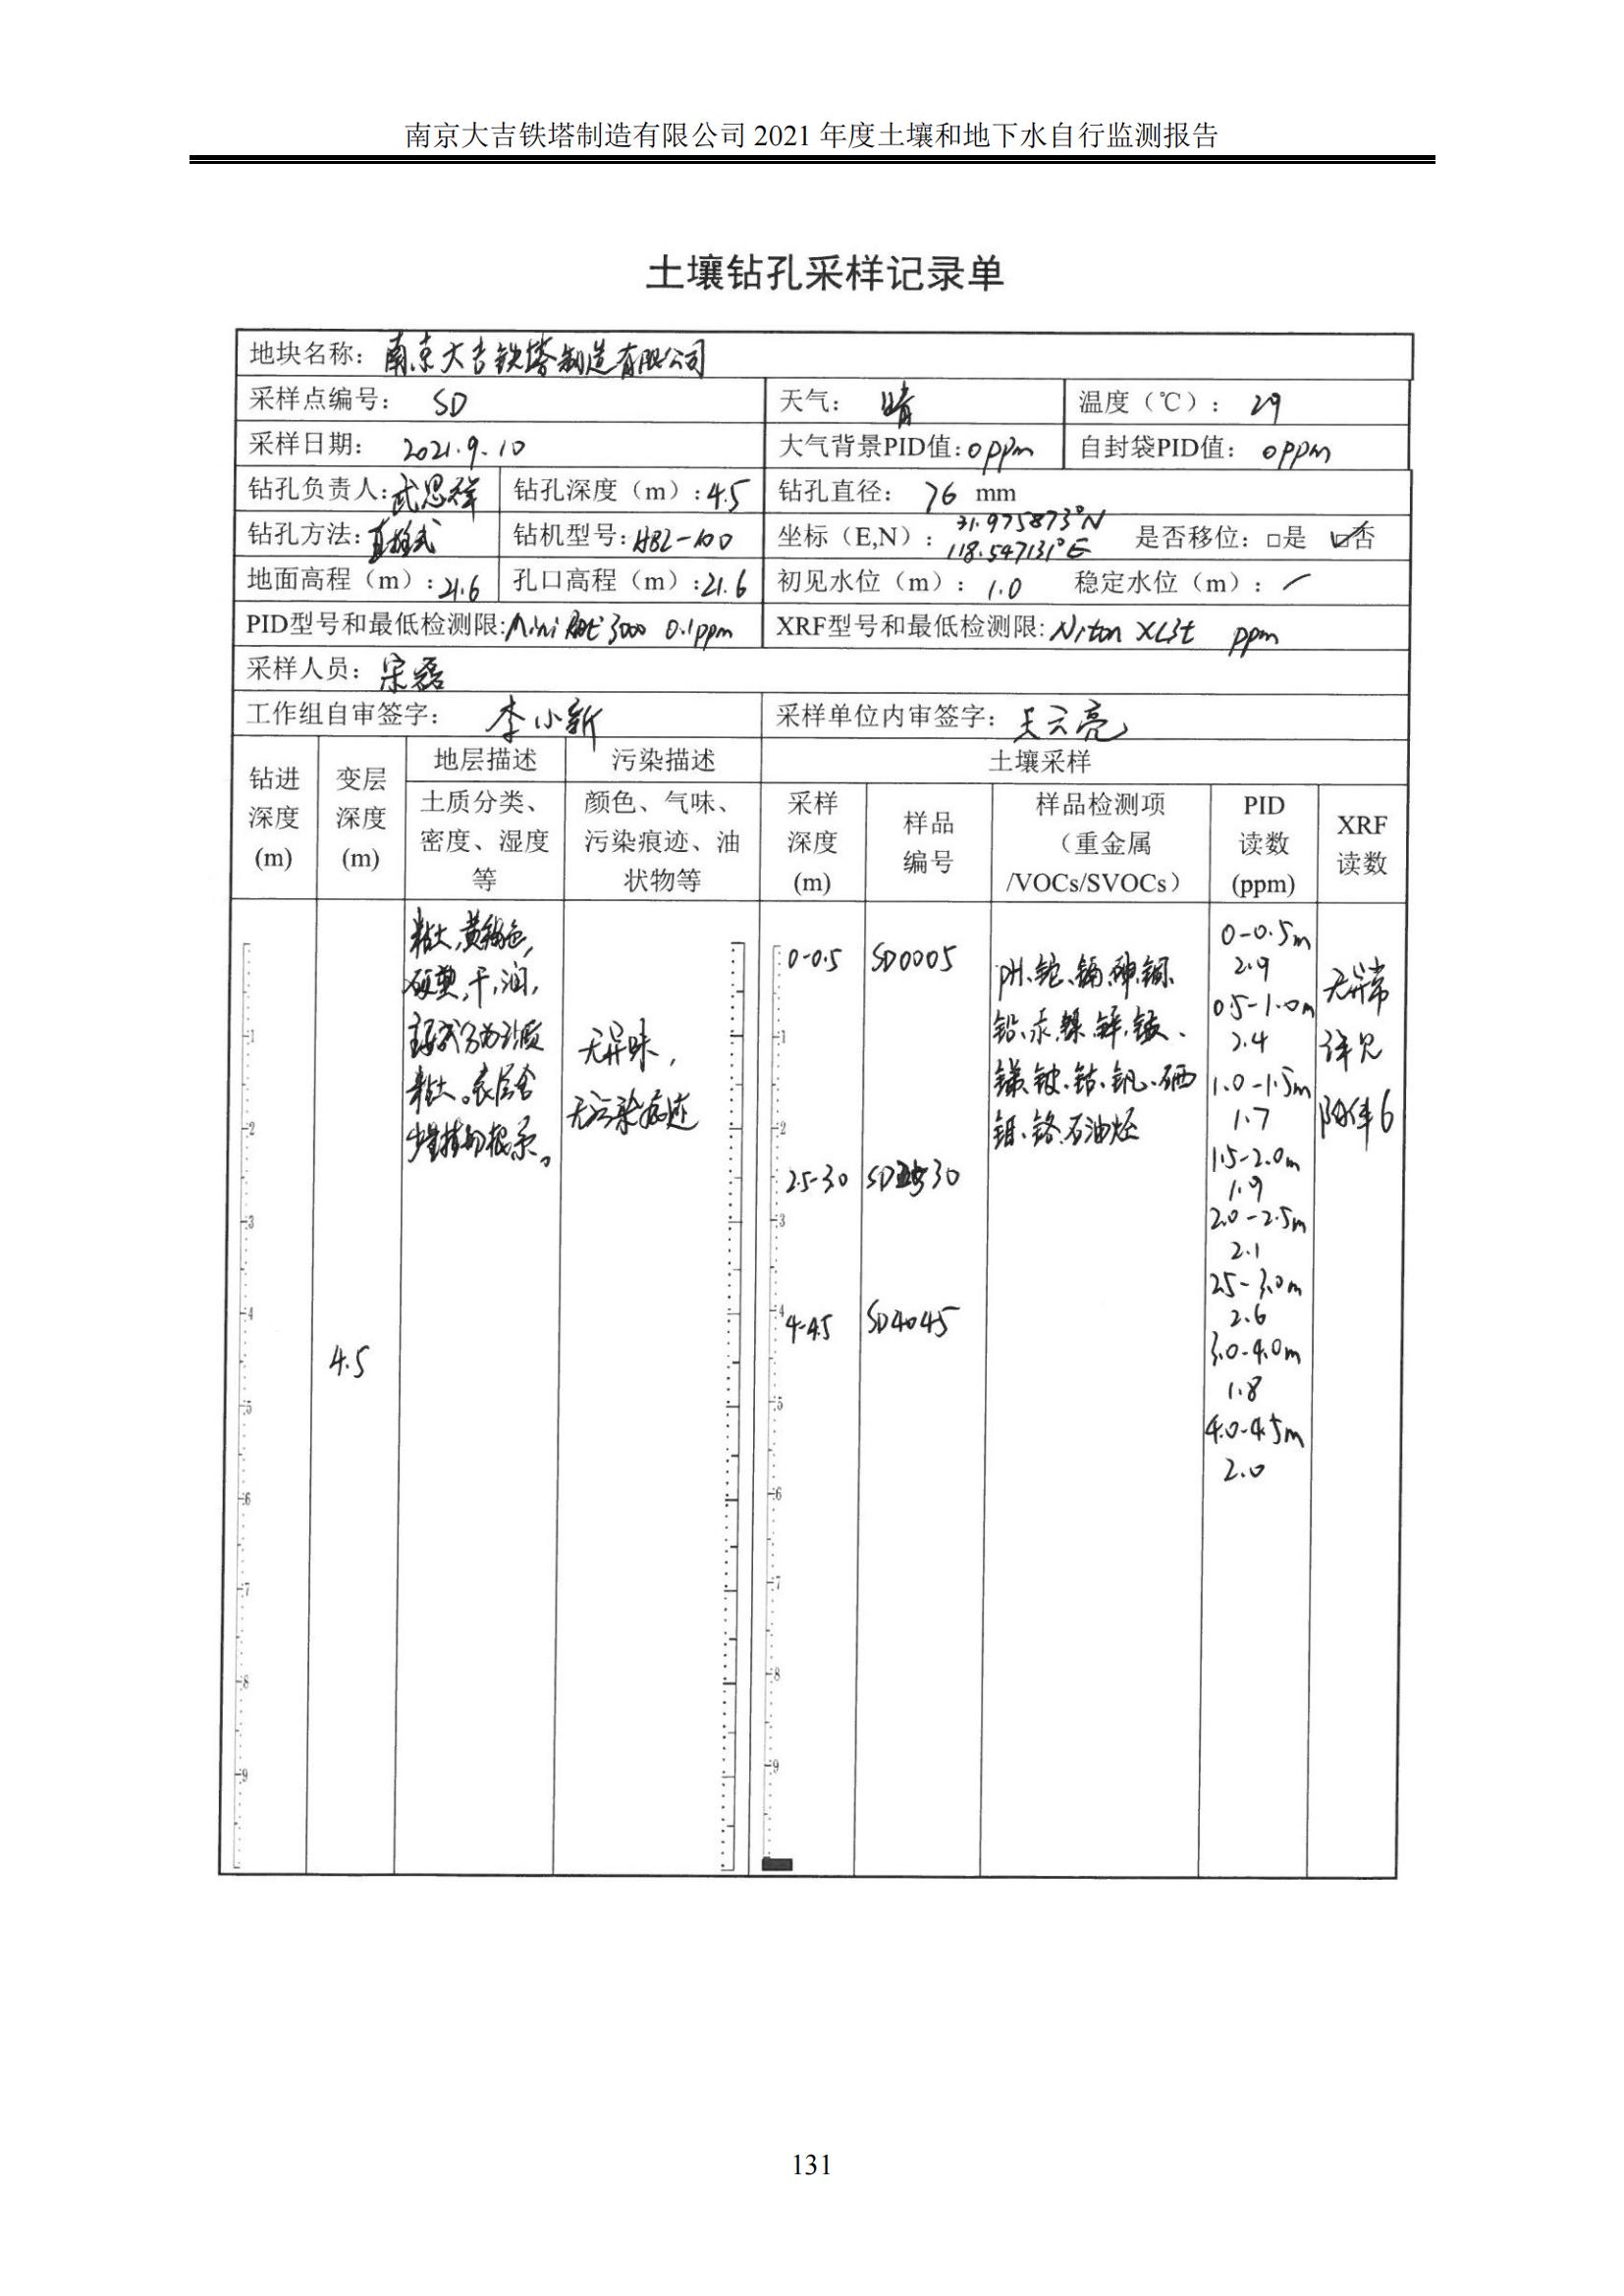 南京大吉铁塔制造有限公司 2021 年度土壤和地下水自行监测报告
土壤钻孔采样记录单
地块名称：南京大吉铁塔制造有限公司
采样点编号：SD 天气：晴 温度（℃）：29
采样日期：2021.9.10 大气背景PID值：0ppm 自封袋PID值：0ppm
钻孔负责人：武思祥 钻孔深度（m）：4.5 钻孔直径：76 mm
钻孔方法：直推式 钻机型号：HBZ-100 坐标（E,N）：31.975873°N 118.547131°E 是否移位：□是 ☑否
地面高程（m）：21.6 孔口高程（m）：21.6 初见水位（m）：1.0 稳定水位（m）：/
PID型号和最低检测限：Mini RAE 3000 0.1ppm XRF型号和最低检测限：Niton XL3t ppm
采样人员：宋磊
工作组自审签字：李小新 采样单位内审签字：云亮
钻进深度(m) 变层深度(m) 地层描述 污染描述 土壤采样
土质分类、密度、湿度等 颜色、气味、污染痕迹、油状物等 采样深度(m) 样品编号 样品检测项（重金属/VOCs/SVOCs） PID读数(ppm) XRF读数
粘土,黄褐色,
硬塑,干,润,
主要成分为粉质
粘土。表层含
少量植物根系。
4.5
无异味，
无污染痕迹
0-0.5 SD0005
2.5-3.0 SD2530
4-4.5 SD4045
pH、铊、镉、砷、铜、
铅、汞、镍、锌、铍、
锑、铍、钴、钒、硒
钼、铬、石油烃
0-0.5m
2.9
0.5-1.0m
2.4
1.0-1.5m
1.7
1.5-2.0m
1.9
2.0-2.5m
2.1
2.5-3.0m
2.6
3.0-4.0m
1.8
4.0-4.5m
2.0
无异常
详见
附件6
1
2
3
4
5
6
7
8
9
1
2
3
4
5
6
7
8
9
131